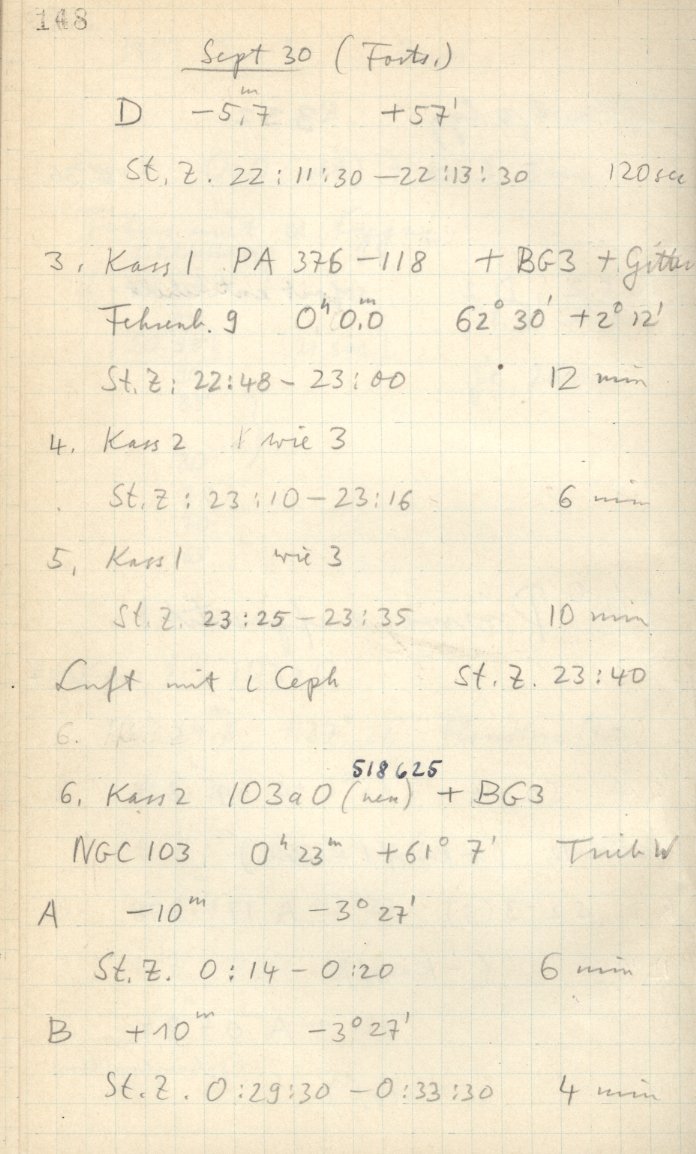 148
Sept 30 (Forts.)
D -5,7ᵐ +57'
St. Z. 22:11:30 - 22:13:30 120 sec
3. Kass 1 PA 376-118 + BG3 + Gitter
Fehrenb. 9 0ʰ 0,0ᵐ 62° 30' +2° 12'
St. Z: 22:48 - 23:00 12 min
4. Kass 2 wie 3
St. Z: 23:10 - 23:16 6 min
5. Kass 1 wie 3
St. Z. 23:25 - 23:35 10 min
Luft mit ι Ceph St. Z. 23:40
6.
518625
6. Kass 2 103a0 (neu) + BG3
NGC 103 0ʰ 23ᵐ +61° 7' W
A -10ᵐ -3° 27'
St. Z. 0:14 - 0:20 6 min
B +10ᵐ -3° 27'
St. Z. 0:29:30 - 0:33:30 4 min